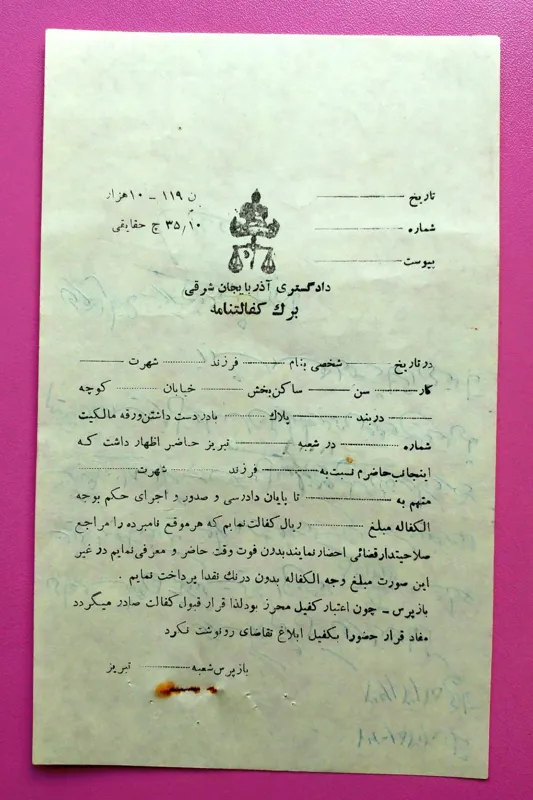 تاریخ
شماره
پیوست
ن ۱۱۹ - ۱۰ هزار
۳۵٫۱۰ چ حقایقی
دادگستری آذربایجان شرقی
برك كفالتنامه
در تاریخ ــــــ شخصی بنام ............ فرزند ............ شهرت ــــــ
کار ............ سن ــــــ ساکن بخش ............ خیابان ............ کوچه
ــــــ دربند ............ پلاك ............ با در دست داشتن ورقه مالکیت
شماره ............ در شعبه ............ تبریز حاضر اظهار داشت که
اینجانب حاضرم نسبت به ............ فرزند ............ شهرت ............
متهم به ............ تا پایان دادرسی و صدور و اجرای حکم بوجه
الکفاله مبلغ ............ ریال کفالت نمایم که هر موقع نامبرده را مراجع
صلاحیتدار قضائی احضار نمایند بدون فوت وقت حاضر و معرفی نمایم در غیر
این صورت مبلغ وجه الکفاله بدون درنك نقدا پرداخت نمایم .
بازپرس - چون اعتبار کفیل محرز بود لذا قرار قبول کفالت صادر میگردد
مفاد قرار حضورا بکفیل ابلاغ تقاضای رونوشت نکرد
بازپرس شعبه ............ تبریز